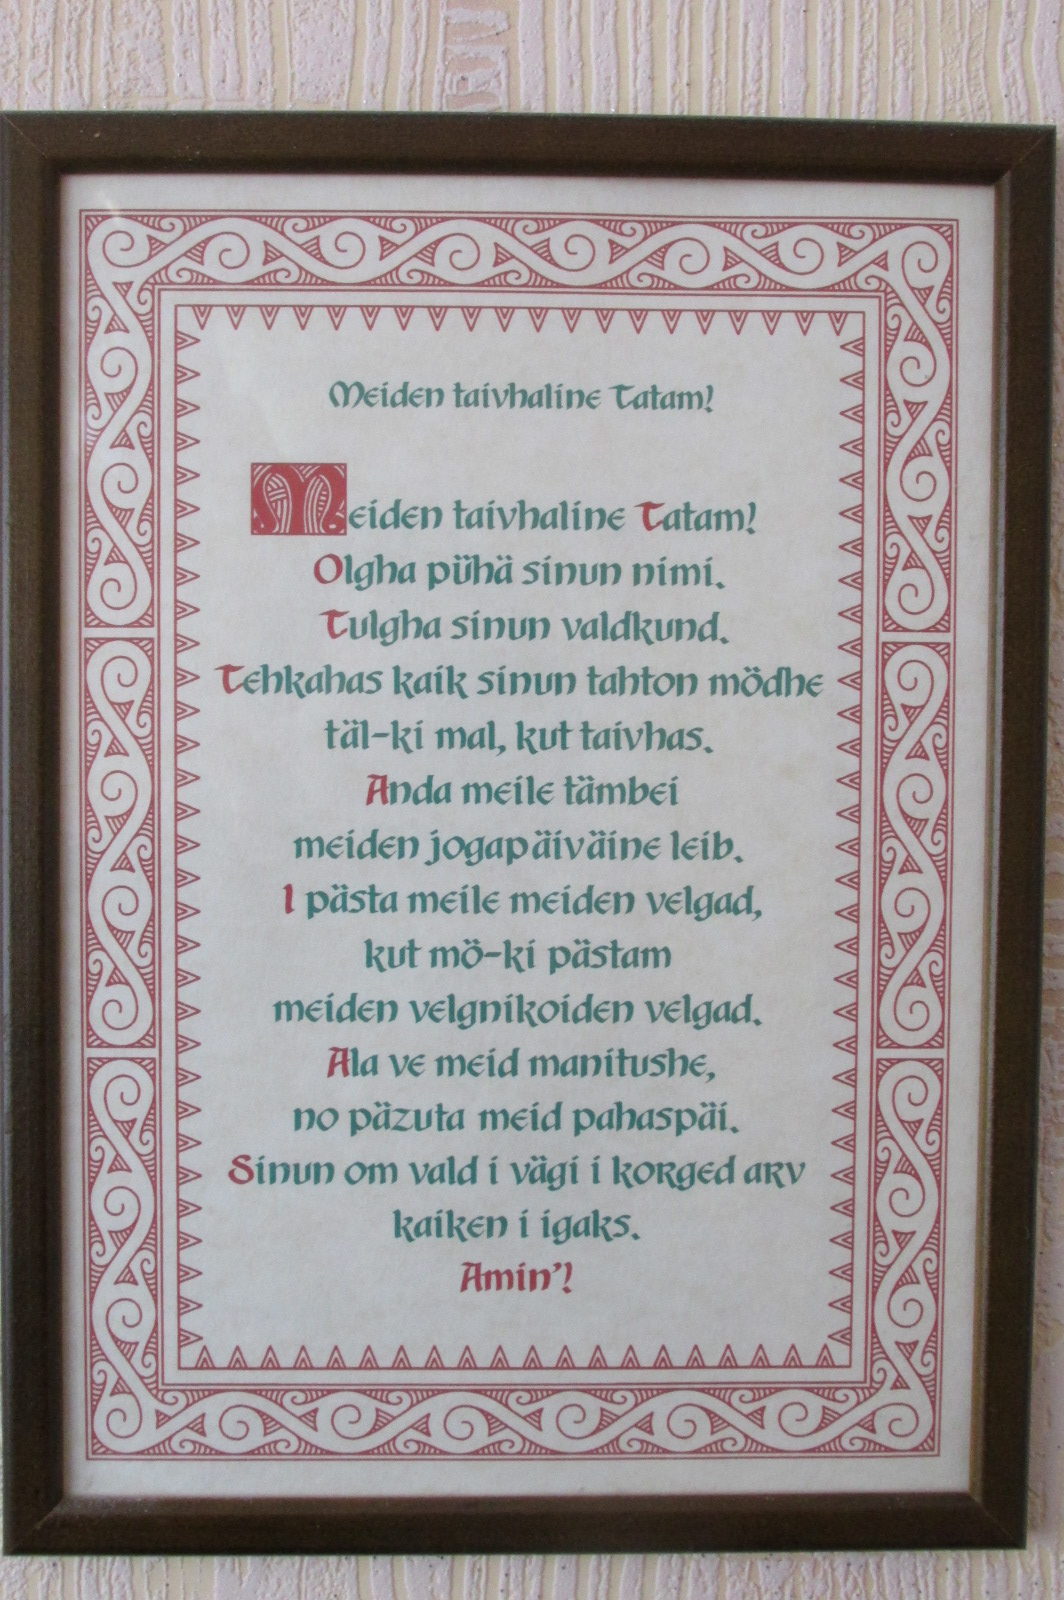 Meiden taivhaline Tatam!
Meiden taivhaline Tatam!
Olgha pühä sinun nimi.
Tulgha sinun valdkund.
Tehkahas kaik sinun tahton mödhe
täl-ki mal, kut taivhas.
Anda meile tämbei
meiden jogapäiväine leib.
I pästa meile meiden velgad,
kut mö-ki pästam
meiden velgnikoiden velgad.
Ala ve meid manitushe,
no päzuta meid pahaspäi.
Sinun om vald i vägi i korged arv
kaiken i igaks.
Amin'!